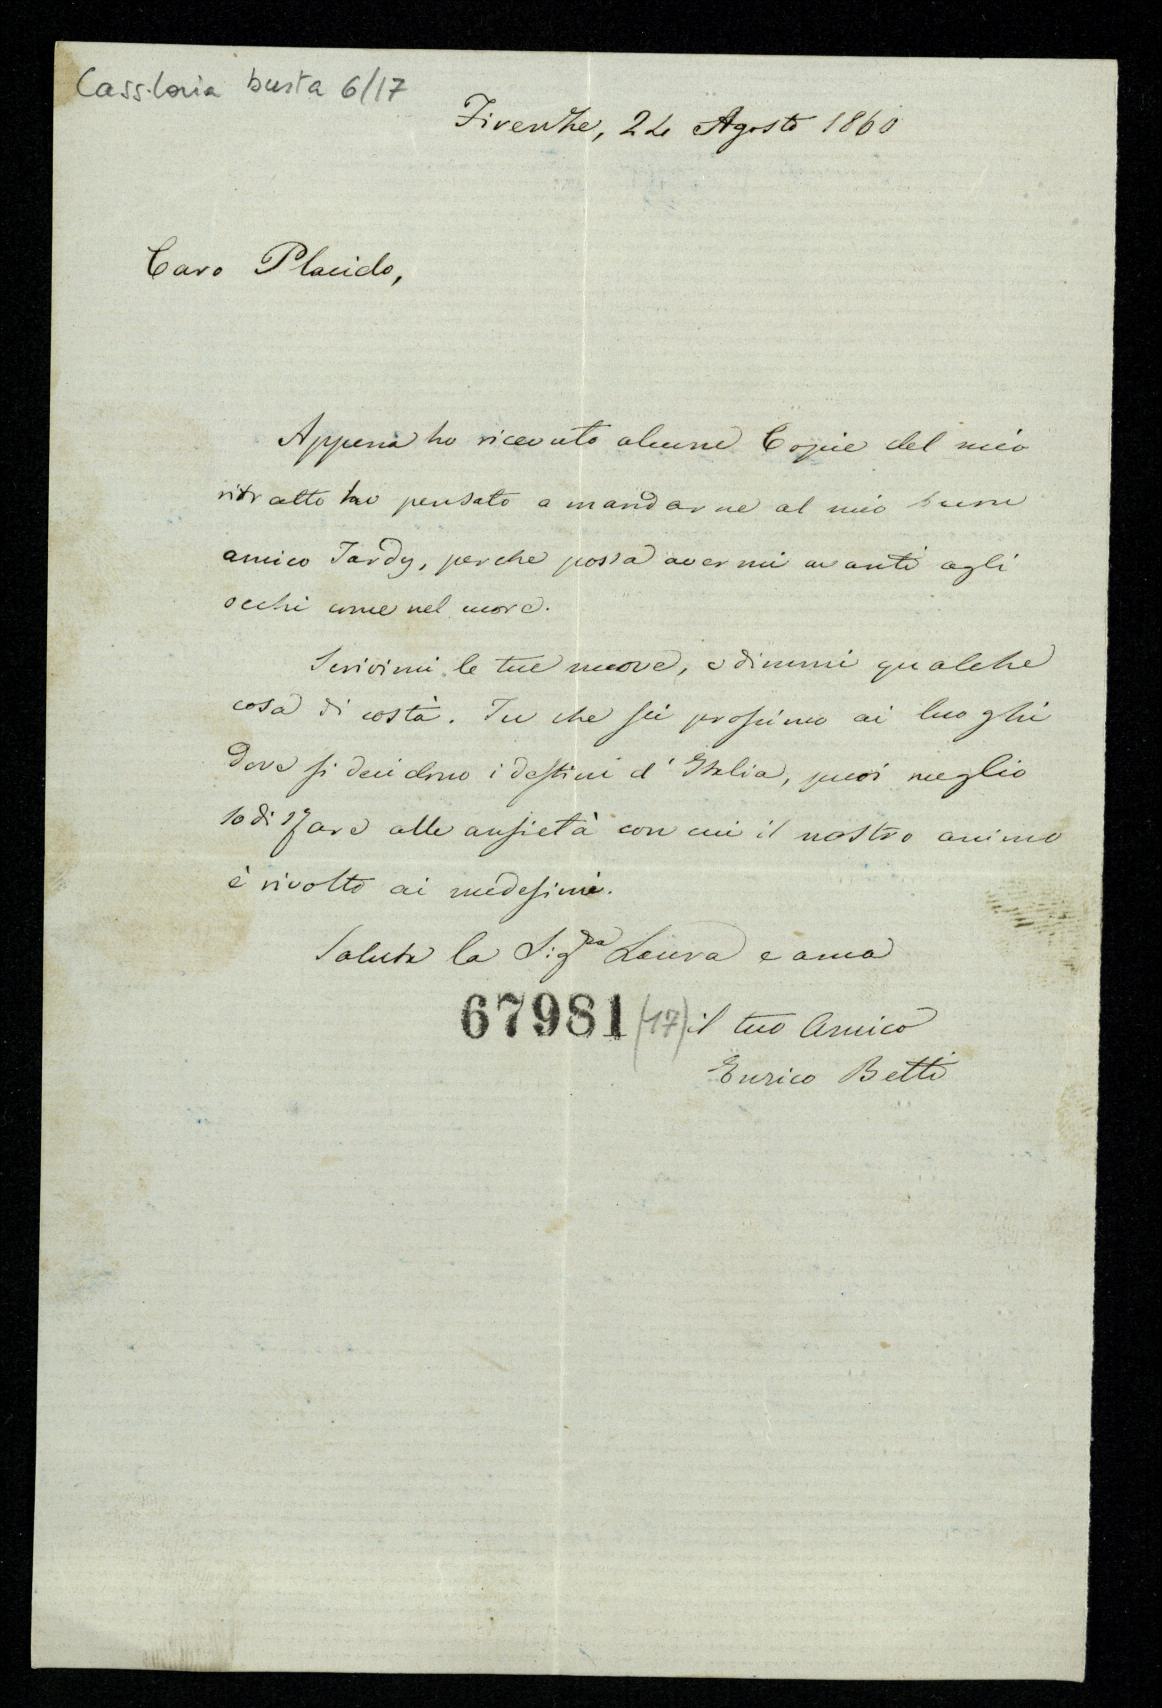 Cass. Loria busta 6/17
Firenze, 24 Agosto 1860
Caro Placido,
Appena ho ricevuto alcune Copie del mio
ritratto ho pensato a mandarne al mio buon
amico Tardy, perche possa avermi avanti agli
occhi come nel cuore.
Scrivimi le tue nuove, e dimmi qualche
cosa di costà. Tu che sei prossimo ai luoghi
dove si decidono i destini d'Italia, puoi meglio
sodisfare alle ansietà con cui il nostro animo
è rivolto ai medesimi.
Saluta la Sig.ra Laura e ama
67981 (17) il tuo Amico
Enrico Betti